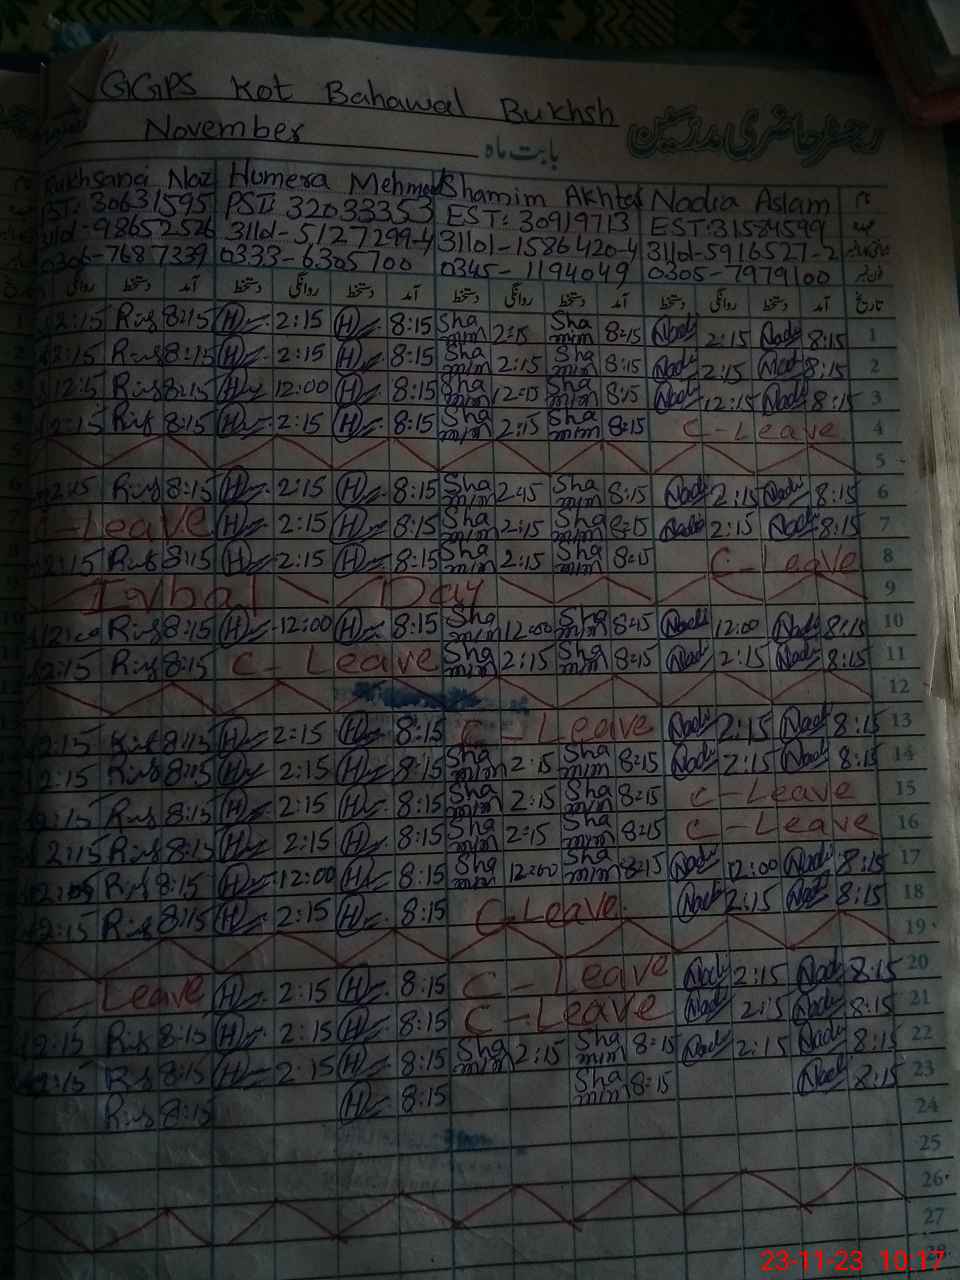 GGPS Kot Bahawal Bukhsh
رجسٹر حاضری مدرسین
November بابت ماہ
Rukhsana Naz Humera Mehmood Shamim Akhtar Nadia Aslam نام
PST: 30631595 PST: 32033353 EST: 30919713 EST: 31584599
-98652526 31101-5127299-4 31101-1586420-4 31101-5916527-2
0306-7687339 0333-6305700 0345-1194049 0305-7979100
روانگی دستخط آمد دستخط روانگی دستخط آمد دستخط روانگی دستخط آمد دستخط روانگی دستخط آمد تاریخ
2:15 8:15 H 2:15 H 8:15 Shamim 2:15 Shamim 8:15 Nadi 2:15 Nadi 8:15 1
2:15 8:15 H 2:15 H 8:15 Shamim 2:15 Shamim 8:15 Nadi 2:15 Nadi 8:15 2
12:15 8:15 H 12:00 H 8:15 Shamim Shamim 8:15 Nadi 12:15 Nadi 8:15 3
2:15 8:15 H 2:15 H 8:15 Shamim 2:15 Shamim 8:15 C-Leave 4
5
8:15 H 2:15 H 8:15 Shamim 2:15 Shamim 8:15 Nadi 2:15 Nadi 8:15 6
C-Leave H 2:15 H 8:15 Shamim 2:15 Shamim 8:15 Nadi 2:15 Nadi 8:15 7
2:15 8:15 H 2:15 H 8:15 Shamim 2:15 Shamim 8:15 C-Leave 8
Iqbal Day 9
8:15 H 12:00 H 8:15 Shamim 12:00 Shamim 8:15 Nadi 12:00 Nadi 8:15 10
2:15 8:15 C-Leave Shamim 2:15 Shamim 8:15 Nadi 2:15 Nadi 8:15 11
12
2:15 8:15 H 2:15 H 8:15 C-Leave Nadi 2:15 Nadi 8:15 13
2:15 8:15 H 2:15 H 8:15 Shamim 2:15 Shamim 8:15 Nadi 2:15 Nadi 8:15 14
2:15 8:15 H 2:15 H 8:15 Shamim 2:15 Shamim 8:15 C-Leave 15
2:15 8:15 H 2:15 H 8:15 Shamim 2:15 Shamim 8:15 C-Leave 16
8:15 H 12:00 H 8:15 Shamim 12:00 Shamim 8:15 Nadi 12:00 Nadi 8:15 17
2:15 8:15 H 2:15 H 8:15 C-Leave Nadi 2:15 Nadi 8:15 18
19
C-Leave H 2:15 H 8:15 C-Leave Nadi 2:15 Nadi 8:15 20
2:15 8:15 H 2:15 H 8:15 C-Leave Nadi 2:15 Nadi 8:15 21
2:15 8:15 H 2:15 H 8:15 Shamim 2:15 Shamim 8:15 Nadi 2:15 Nadi 8:15 22
8:15 H 8:15 Shamim 8:15 Nadi 8:15 23
24
25
26
27
28
23-11-23 10:17